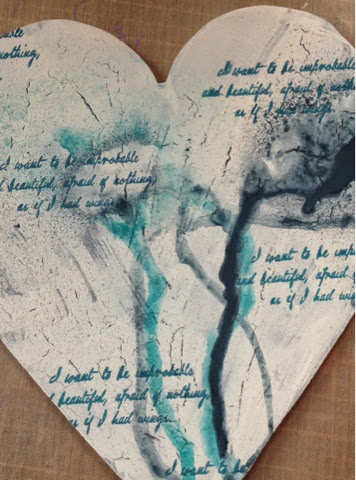 nothing,
I want to be improbable
and beautiful, afraid of
as if I had wings.
I want to be improbable
beautiful, afraid of nothing,
as if I had wings.
I want to be
and beautiful, afraid of
as if I had
I want to be improbable
beautiful, afraid of nothing,
as if I had wings.
I want to be